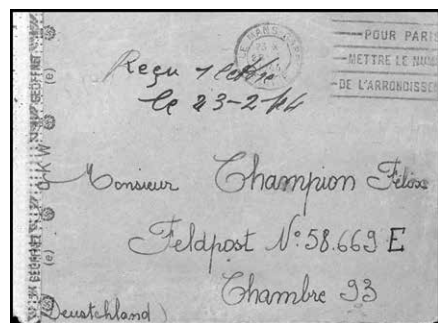 LE MANS
POUR PARIS
METTRE LE NUM
DE L'ARRONDISSEM
Reçu 1 lettre
le 23-2-44
Monsieur Champion Félix
Feldpost N° 58.669 E
Chambre 93
(Deustchland)
GEÖFFNET
(e)
O K W
(e)
GEÖFFNET
(e)